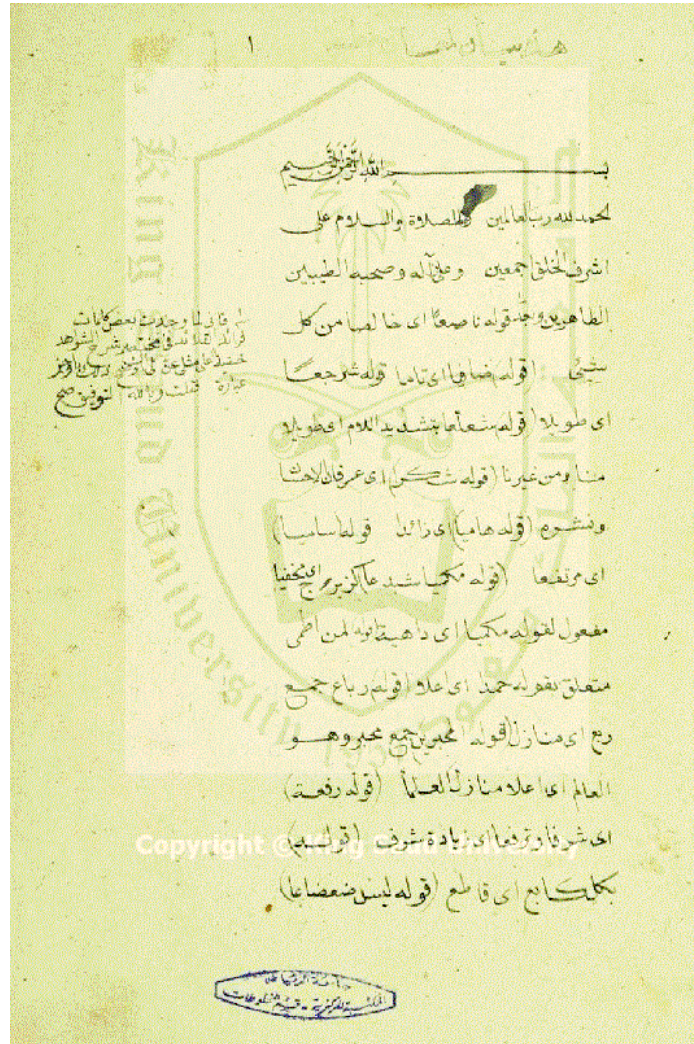 ١
بسم الله الرحمن الرحيم
الحمد لله رب العالمين والصلاة والسلام على
اشرف الخلق اجمعين وعلى آله وصحبه الطيبين
الطاهرين قوله ناصعا اى خالصا من كل
شيئ (قوله ضافيا اى تاما قوله شرجعا
اى طويلا (قوله شعلعا بتشديد اللام اى طويلا
منا ومن غيرنا (قوله شكرا اى عرفان الاحسان
ونشره (قوله هاميا) اى زائدا قوله ساميا)
اى مرتفعا (قوله مكميا
مفعول لقوله مكميا اى داهية قوله لمن
متعلق بقوله حمدا اى اعلا (قوله رباع جمع
ربع اى منازل (قوله المحبرين جمع محبر وهو
العالم اى اعلا منازل العلما (قوله رفعة)
اى شرفا وترفعا اى زيادة شرف (قوله)
بكل كابع اى قاطع (قوله ليس ضعضاعا)
فانى لما وجدت بعض كلمات
فرائد القلائد فى مختصر شرح الشواهد
عبارة قلت وبالله التوفيق صح
King Saud University
1957
Copyright © King Saud University
جامعة الرياض
المكتبة المركزية - قسم المخطوطات